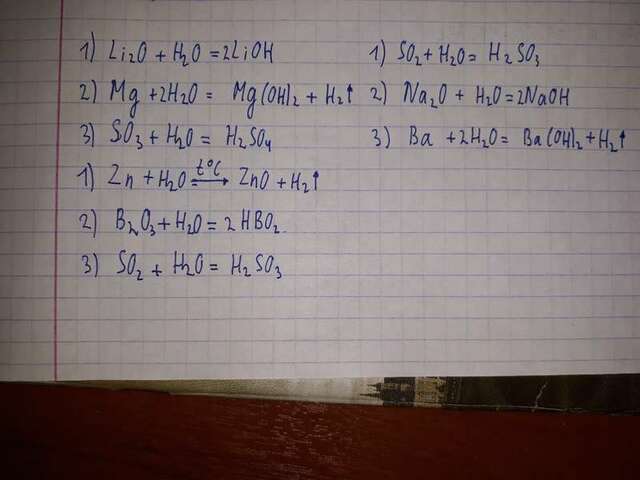 1) Li₂O + H₂O = 2LiOH
2) Mg + 2H₂O = Mg(OH)₂ + H₂↑
3) SO₃ + H₂O = H₂SO₄
1) Zn + H₂O t°C→ ZnO + H₂↑
2) B₂O₃ + H₂O = 2HBO₂
3) SO₂ + H₂O = H₂SO₃
1) SO₂ + H₂O = H₂SO₃
2) Na₂O + H₂O = 2NaOH
3) Ba + 2H₂O = Ba(OH)₂ + H₂↑